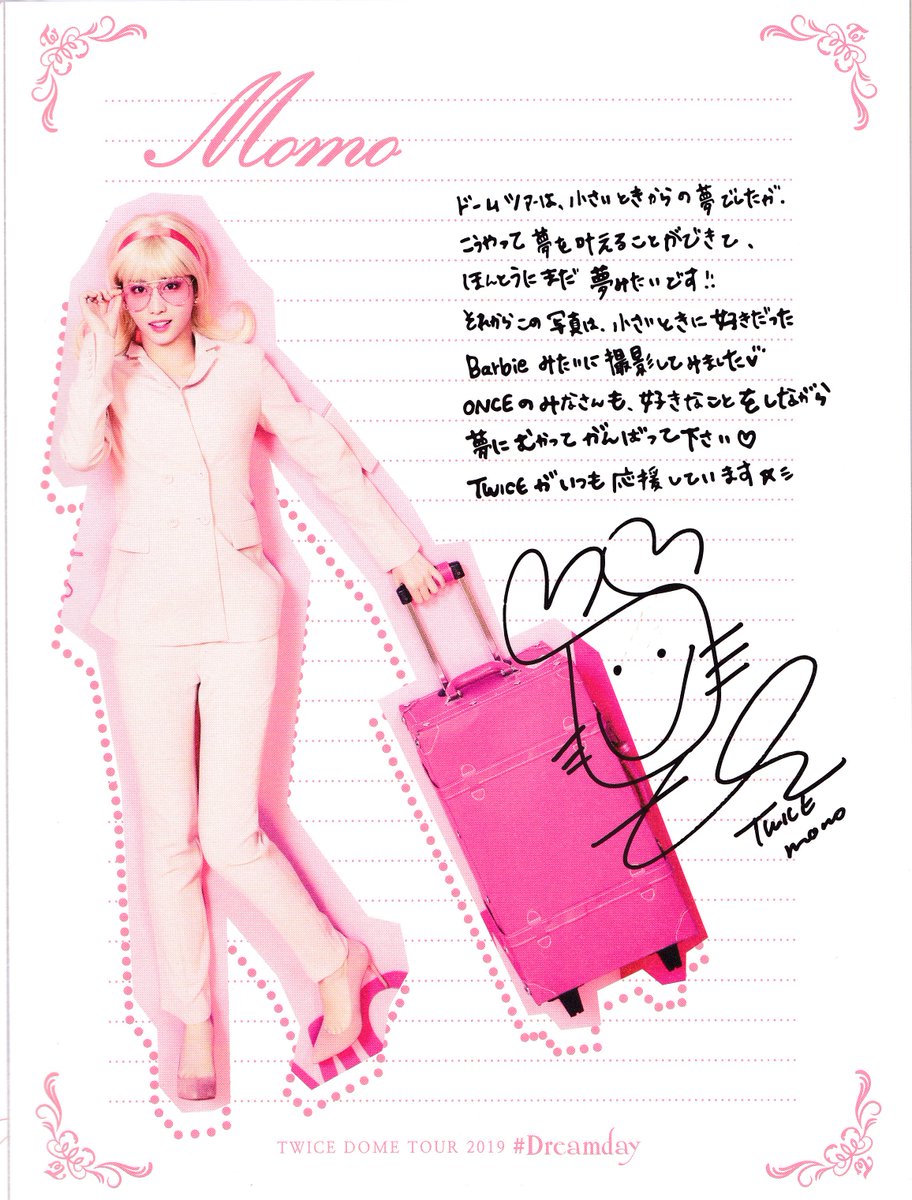 Momo
ドームツアーは、小さいときからの夢でしたが、
こうやって夢を叶えることができて、
ほんとうにまだ夢みたいです!!
それからこの写真は、小さいときに好きだった
Barbieみたいに撮影してみました♡
ONCEのみなさんも、好きなことをしながら
夢にむかってがんばって下さい♡
TWICEがいつも応援しています☆ミ
TWICE
momo
TWICE DOME TOUR 2019 #Dreamday